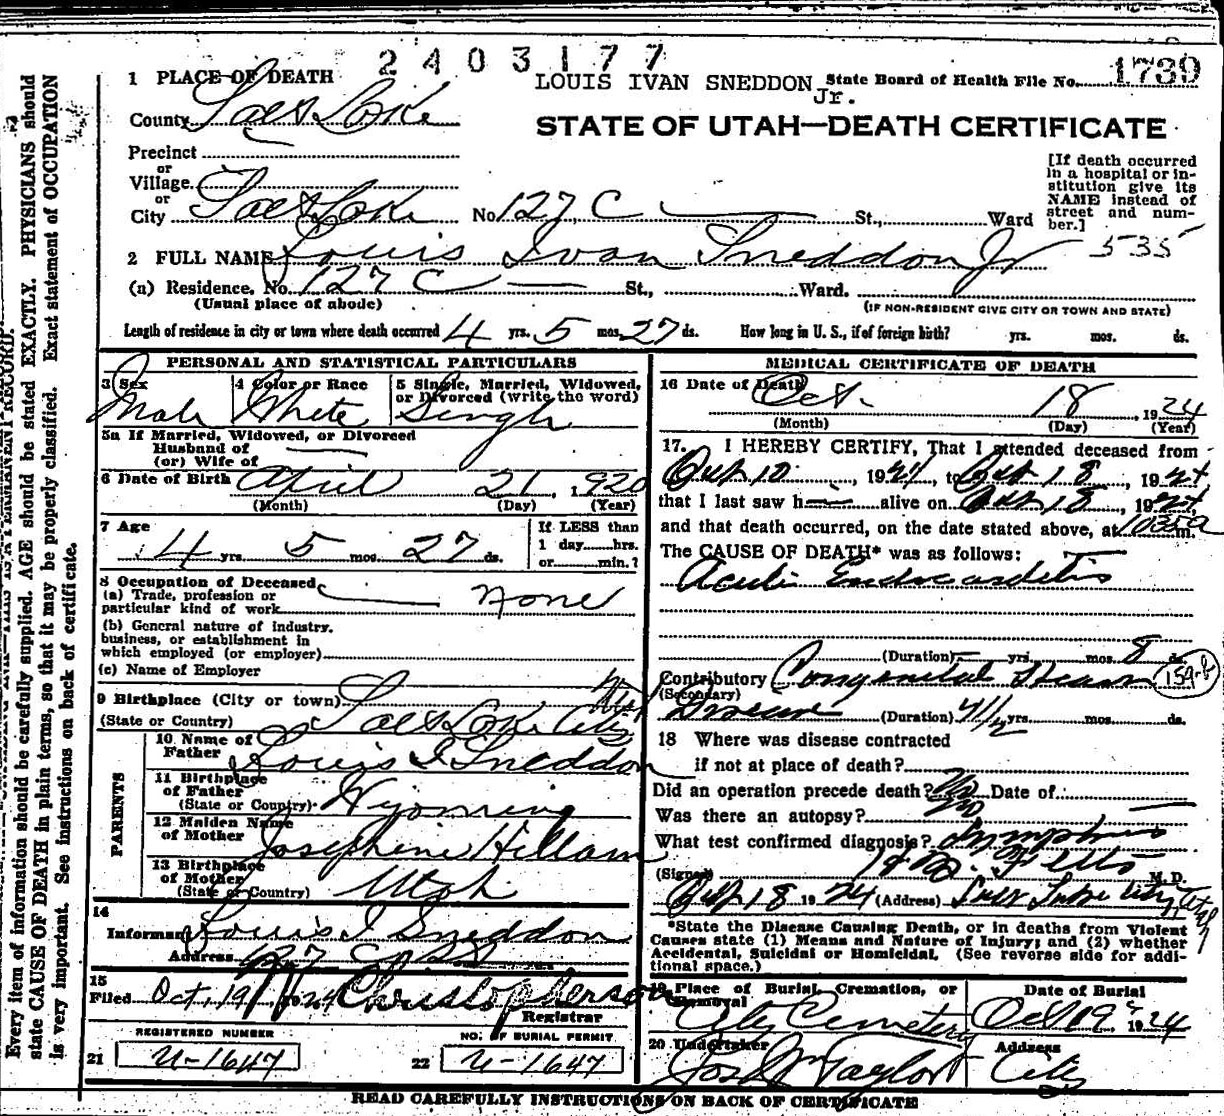 2403177
1 PLACE OF DEATH
LOUIS IVAN SNEDDON Jr.
State Board of Health File No. 1739
County Salt Lake
STATE OF UTAH—DEATH CERTIFICATE
Precinct
or
Village
or
City Salt Lake No. 127 C St., Ward
[If death occurred
in a hospital or in-
stitution give its
NAME instead of
street and num-
ber.]
535
2 FULL NAME Louis Ivan Sneddon Jr
(a) Residence. No. 127 C St., Ward.
(Usual place of abode)
(IF NON-RESIDENT GIVE CITY OR TOWN AND STATE)
Length of residence in city or town where death occurred 4 yrs. 5 mos. 27 ds. How long in U. S., if of foreign birth? yrs. mos. ds.
PERSONAL AND STATISTICAL PARTICULARS
3 Sex
Male
4 Color or Race
White
5 Single, Married, Widowed,
or Divorced (write the word)
Single
5a If Married, Widowed, or Divorced
Husband of
(or) Wife of
6 Date of Birth April 21, 1920
(Month) (Day) (Year)
7 Age
4 yrs. 5 mos. 27 ds.
If LESS than
1 day......hrs.
or......min.?
8 Occupation of Deceased
(a) Trade, profession or
particular kind of work None
(b) General nature of industry,
business, or establishment in
which employed (or employer)
(c) Name of Employer
9 Birthplace (City or town) Salt Lake City
(State or Country)
PARENTS
10 Name of
Father Louis I Sneddon
11 Birthplace
of Father
(State or Country) Wyoming
12 Maiden Name
of Mother Josephine Hillam
13 Birthplace
of Mother
(State or Country) Utah
14
Informant Louis I Sneddon
Address 127 C St
15
Filed Oct, 19 1924 Christopherson
Registrar
REGISTERED NUMBER
21 U-1647
NO. OF BURIAL PERMIT
22 U-1647
MEDICAL CERTIFICATE OF DEATH
16 Date of Death
Oct. 18, 1924
(Month) (Day) (Year)
17. I HEREBY CERTIFY, That I attended deceased from
Oct 10, 1924, to Oct 18, 1924
that I last saw h alive on Oct 18, 1924,
and that death occurred, on the date stated above, at 1035a m.
The CAUSE OF DEATH* was as follows:
Acute Endocarditis
(Duration) yrs. mos. 8 ds.
Contributory Congenital Heart
(Secondary)
159-b
Disease (Duration) 4 1/2 yrs. mos. ds.
18 Where was disease contracted
if not at place of death?
Did an operation precede death? No Date of
Was there an autopsy? No
What test confirmed diagnosis? Symptoms
(Signed) M. D.
Oct 18 1924 (Address) Salt Lake City, Utah
*State the Disease Causing Death, or in deaths from Violent
Causes state (1) Means and Nature of Injury; and (2) whether
Accidental, Suicidal or Homicidal. (See reverse side for addi-
tional space.)
19 Place of Burial, Cremation, or
Removal
City Cemetery
Date of Burial
Oct 19 1924
20 Undertaker
Jos Wm Taylor
Address
City
READ CAREFULLY INSTRUCTIONS ON BACK OF CERTIFICATE
Every item of information should be carefully supplied. AGE should be stated EXACTLY. PHYSICIANS should
state CAUSE OF DEATH in plain terms, so that it may be properly classified. Exact statement of OCCUPATION
is very important. See instructions on back of certificate.